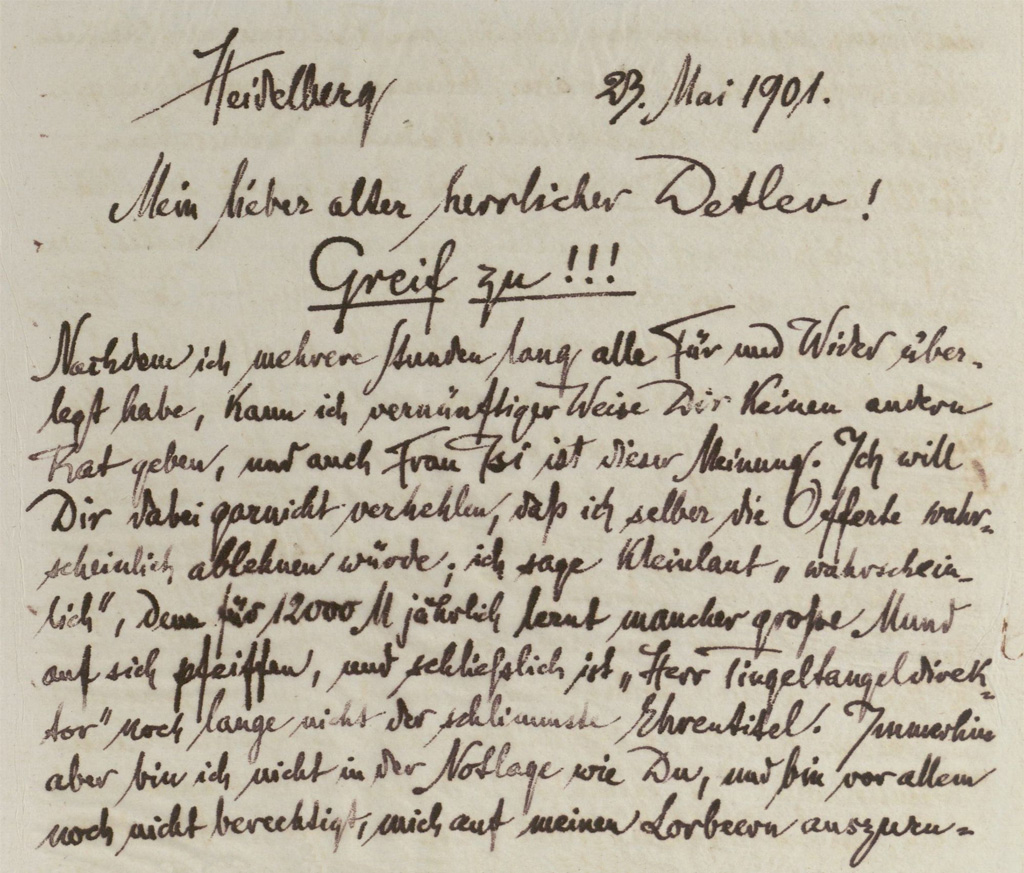 Heidelberg 23. Mai 1901.
Mein lieber alter herrlicher Detlev!
Greif zu!!!
Nachdem ich mehrere Stunden lang alle Für und Wider über-
legt habe, kann ich vernünftiger Weise Dir keinen andern
Rat geben, und auch Frau Isi ist dieser Meinung. Ich will
Dir dabei garnicht verhehlen, daß ich selber die Offerte wahr-
scheinlich ablehnen würde; ich sage kleinlaut „wahrschein-
lich“, denn für 12000 M jährlich lernt mancher große Mund
auf sich pfeiffen, und schließlich ist „Herr Tingeltangeldirek-
tor“ noch lange nicht der schlimmste Ehrentitel. Immerhin
aber bin ich nicht in der Notlage wie Du, und bin vor allem
noch nicht berechtigt, mich auf meinen Lorbeern auszuru-